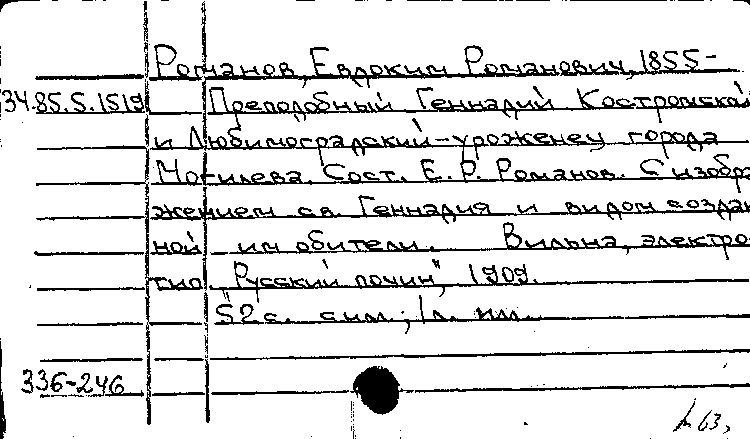 Романов, Евдоким Романович, 1855-
34.85.5.1519 Преподобный Геннадий Костромской
и Любимоградский-уроженец города
Могилева. Сост. Е. Р. Романов. С изобра
жением св. Геннадия и видом создан
ной им обители. Вильна, электро
тип. "Русский почин", 1909.
52 с. с илл; 1 л. илл.
336-246
63,